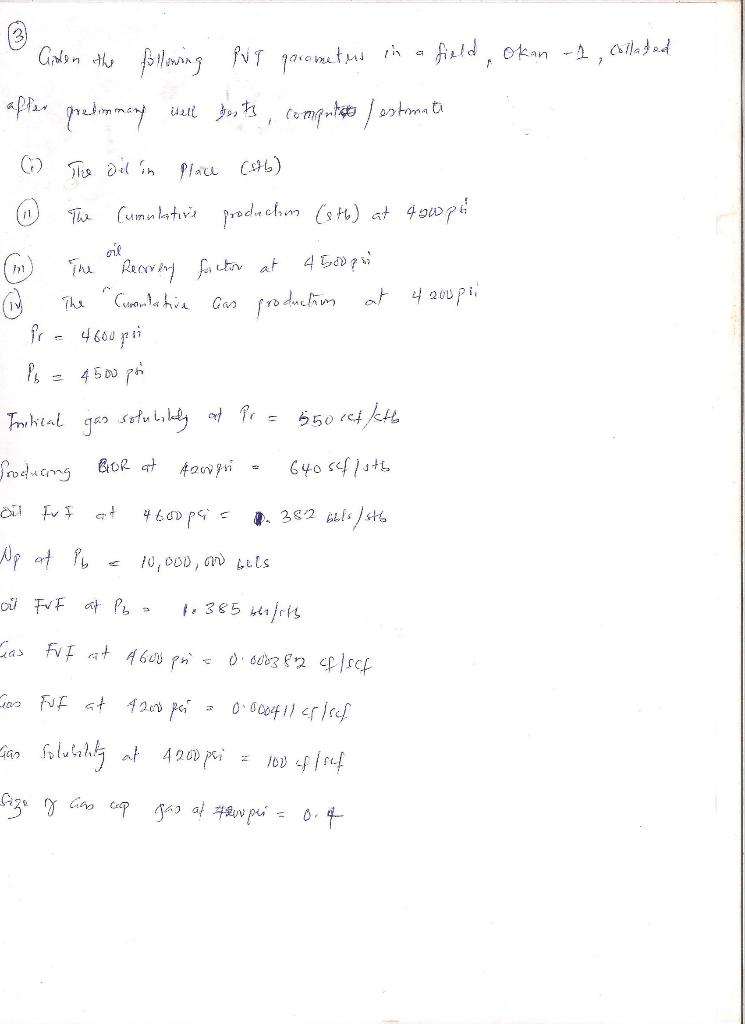 ③
Given the following PVT parameters in a field, Okan -1, collated
after preliminary well tests, compute / estimate
(i) The Oil in Place (stb)
(ii) The Cumulative production (stb) at 4200 psi
(iii) The oil Recovery factor at 4500 psi
(iv) The Cumulative Gas production at 4200 psi
Pr = 4600 psi
Pb = 4500 psi
Initial gas solubility at Pr = 550 scf/stb
Producing GOR at 4200 psi = 640 scf/stb
Oil FVF at 4600 psi = 1.382 bbls/stb
Np at Pb = 10,000,000 bbls
Oil FVF at Pb = 1.385 bbl/stb
Gas FVF at 4600 psi = 0.000382 cf/scf
Gas FVF at 4200 psi = 0.000411 cf/scf
Gas Solubility at 4200 psi = 100 cf/scf
Size of Gas cap gas at psi = 0.4